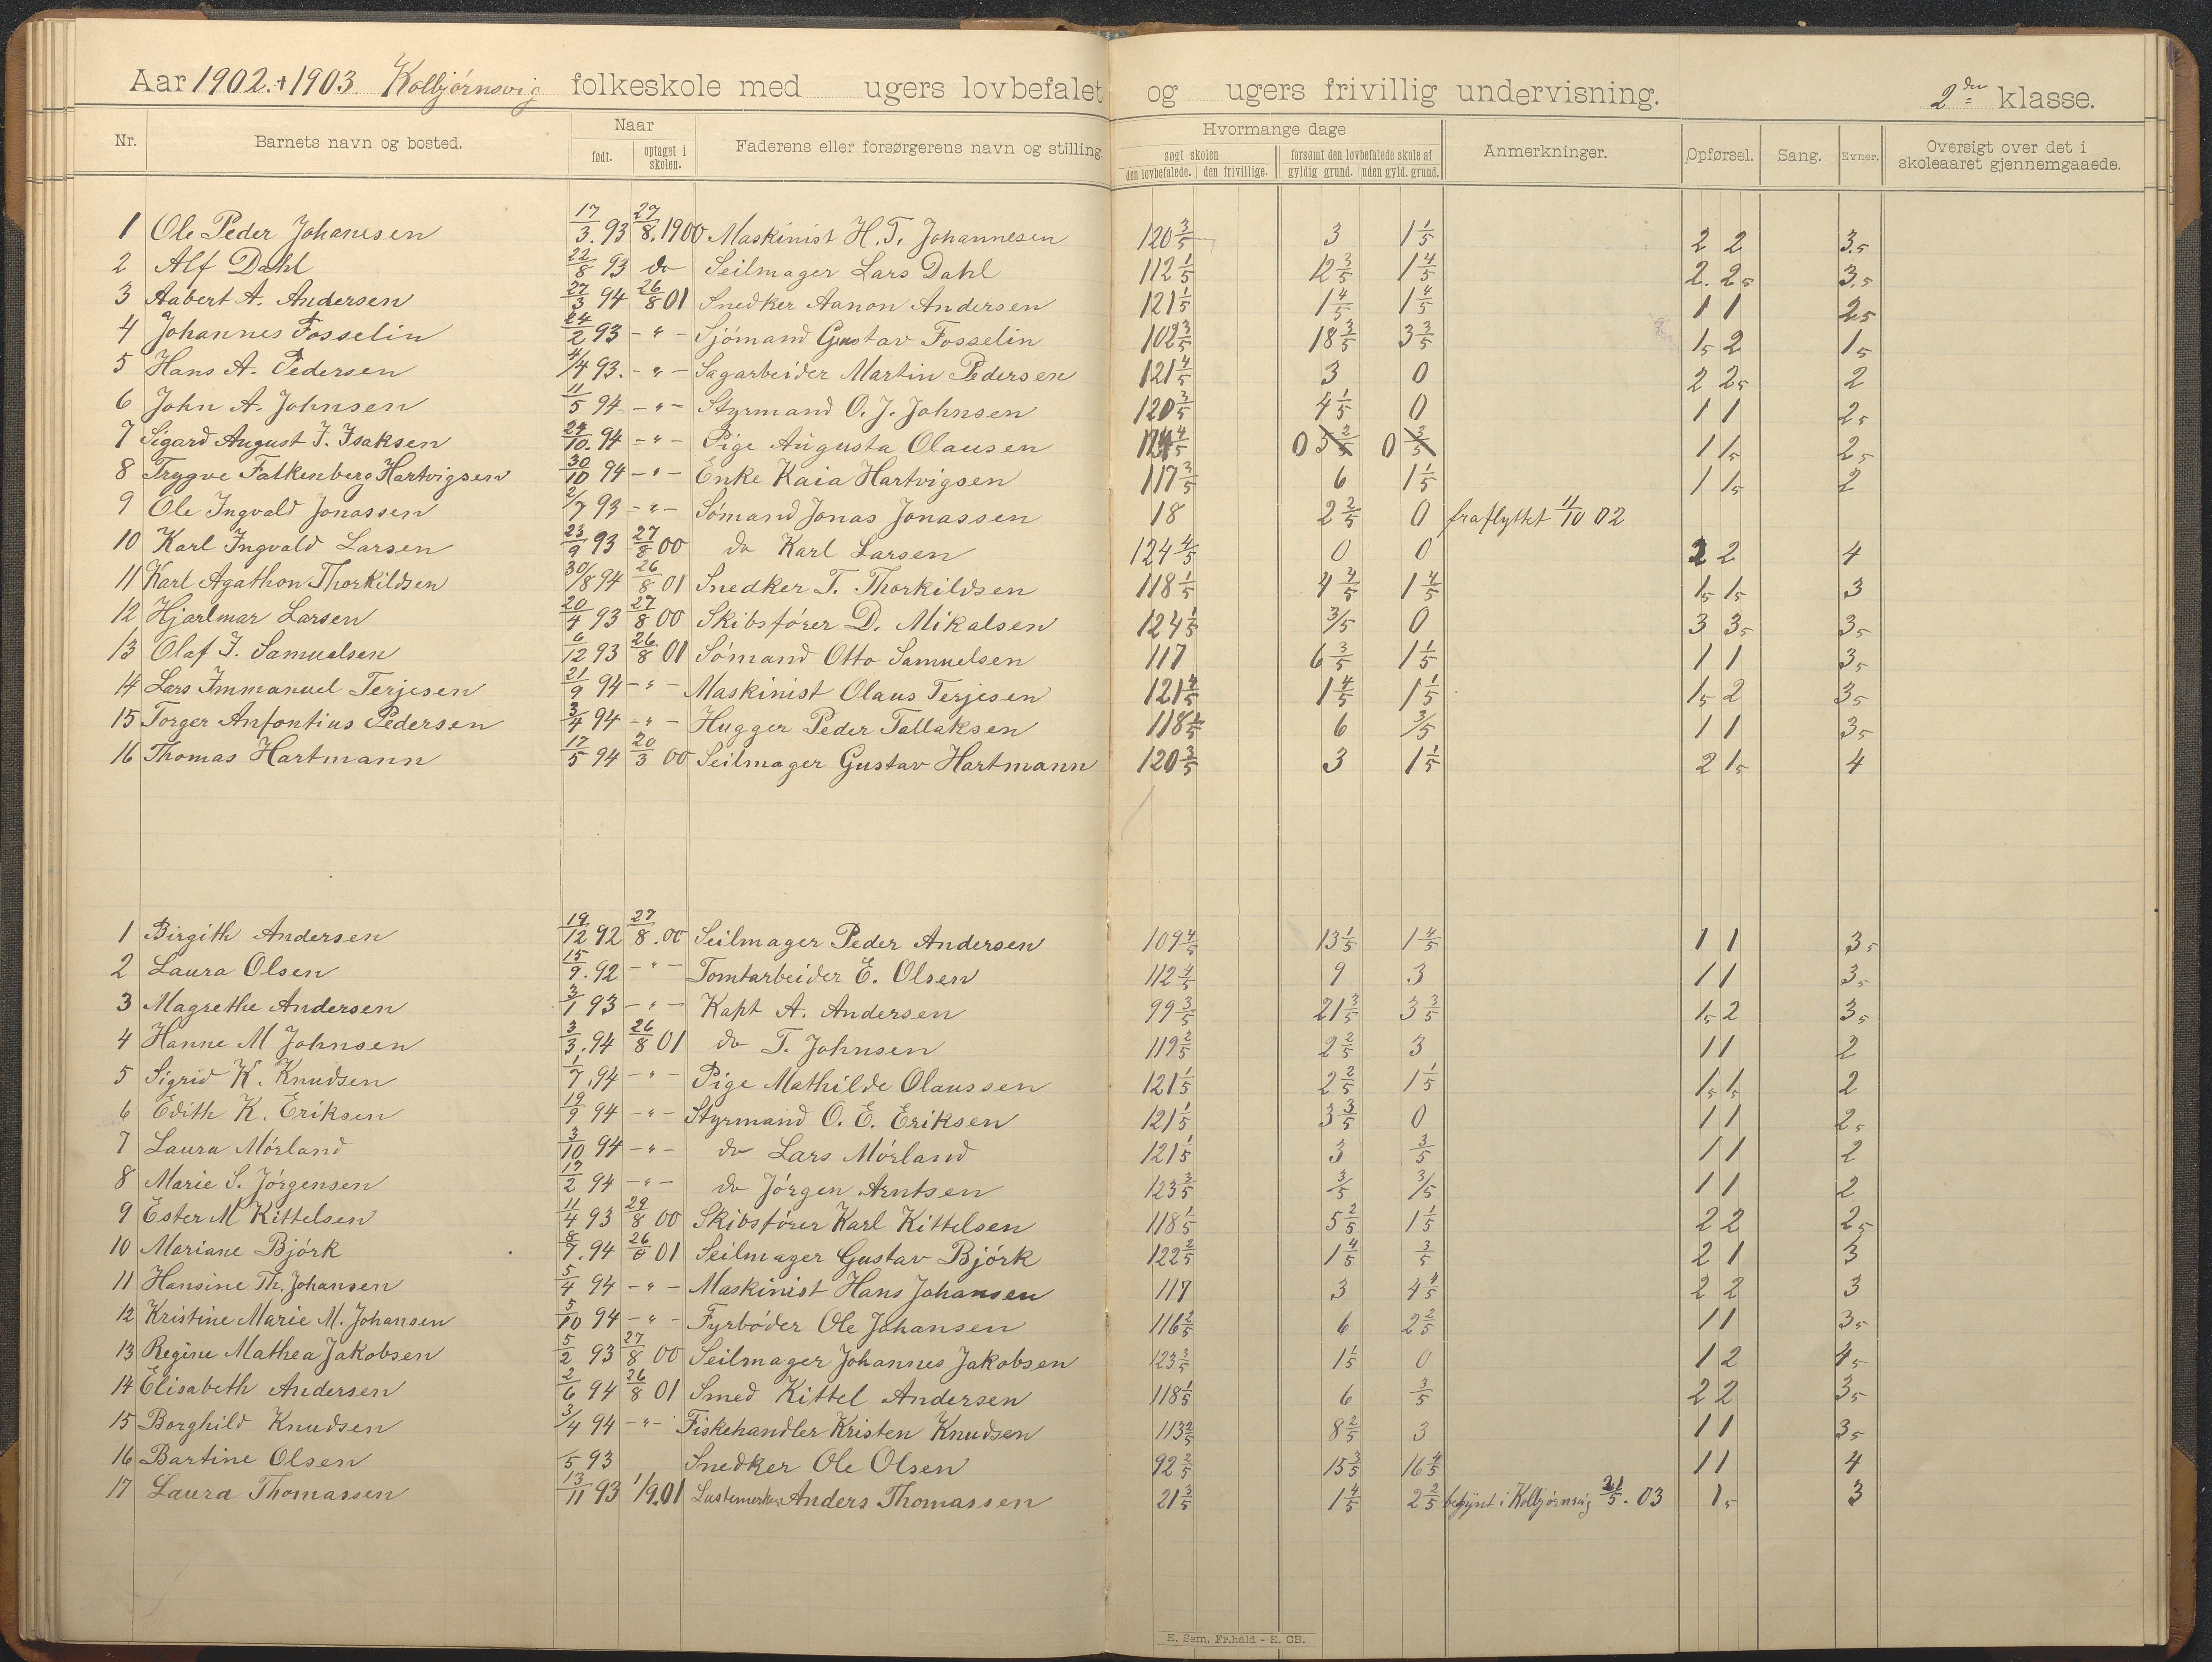 Aar 1902.+1903. Kolbjörnsvig folkeskole med ugers lovbefalet og ugers frivillig undervisning. 2den klasse.
Nr. Barnets navn og bosted. Naar født. optaget i skolen. Faderens eller forsørgerens navn og stilling. Hvormange dage søgt skolen den lovbefalede. den frivillige. forsømt den lovbefalede skole af gyldig grund. uden gyld. grund. Anmerkninger. Opførsel. Sang. Evner. Oversigt over det i skoleaaret gjennemgaaede.
1 Ole Peder Johanesen 17/3.93 27/8.1900 Maskinist H. T. Johannesen 120 3/5 3 1 1/5 2 2 3.5
2 Alf Dahl 22/8 93 do Seilmager Lars Dahl 112 1/5 12 3/5 1 4/5 2. 2.5 3.5
3 Aabert A. Andersen 27/3 94 26/8 01 Snedker Aanon Andersen 121 1/5 1 4/5 1 4/5 1 1 2.5
4 Johannes Fosselin 24/2 93 - " - Sjömand Gustav Fosselin 102 3/5 18 3/5 3 3/5 1.5 2 1.5
5 Hans A. Pedersen 4/4 93. - " - Sagarbeider Martin Pedersen 121 4/5 3 0 2 2.5 2
6 John A. Johnsen 11/5 94 - " - Styrmand O. J. Johnsen 120 3/5 4 1/5 0 1 1 2.5
7 Sigard August J. Isaksen 24/10. 94 - " - Pige Augusta Olausen 124 4/5 0 0 1 1.5 2.5
8 Trygve Falkenberg Hartvigsen 30/10 94 - " - Enke Kaia Hartvigsen 117 3/5 6 1 1/5 1 1.5 2
9 Ole Ingvald Jonassen 2/7 93 - " - Sömand Jonas Jonassen 18 2 2/5 0 fraflyttet 11/10 02
10 Karl Ingvald Larsen 23/9 93 27/8 00 do Karl Larsen 124 4/5 0 0 2 2 4
11 Karl Agathon Thorkildsen 30/8 94 26/8 01 Snedker T. Thorkildsen 118 1/5 4 4/5 1 4/5 1.5 1.5 3
12 Hjarlmar Larsen 20/4 93 27/8 00 Skibsförer D. Mikalsen 124 1/5 3/5 0 3 3.5 3.5
13 Olaf J. Samuelsen 6/12 93 26/8 01 Sömand Otto Samuelsen 117 6 3/5 1 1/5 1 1 3.5
14 Lars Immanuel Terjesen 21/9 94 - " - Maskinist Olaus Terjesen 121 4/5 1 4/5 1 1/5 1.5 2 3.5
15 Torger Anfontius Pedersen 3/4 94 - " - Hugger Peder Tallaksen 118 1/5 6 3/5 1 1 3.5
16 Thomas Hartmann 17/5 94 20/3 00 Seilmager Gustav Hartmann 120 3/5 3 1 1/5 2 1.5 4
1 Birgith Andersen 19/12 92 27/8.00 Seilmager Peder Andersen 109 4/5 13 1/5 1 4/5 1 1 3.5
2 Laura Olsen 15/9.92 - " - Tomtarbeider E. Olsen 112 4/5 9 3 1 1 3.5
3 Magrethe Andersen 3/1 93 - " - Kapt A. Andersen 99 3/5 21 3/5 3 3/5 1.5 2 3.5
4 Hanne M Johnsen 3/3.94 26/8 01 do T. Johnsen 119 2/5 2 2/5 3 1 1 2
5 Sigrid K. Knudsen 1/7.94 - " - Pige Mathilde Olaussen 121 1/5 2 2/5 1 1/5 1.5 1.5 2
6 Edith K. Eriksen 19/9 94 - " - Styrmand O. E. Eriksen 121 1/5 3 3/5 0 1 1 2.5
7 Laura Mörland 3/10 94 - " - do Lars Mörland 121 1/5 3 3/5 1 1 2
8 Marie S. Jörgensen 17/2 94 - " - do Jörgen Arntsen 123 3/5 3/5 3/5 1 1 2
9 Ester M Kittelsen 11/4 93 29/8 00 Skibsförer Karl Kittelsen 118 1/5 5 2/5 1 1/5 2 2 2.5
10 Mariane Björk 8/7.94 26/8 01 Seilmager Gustav Björk 122 2/5 1 4/5 3/5 2 1 3
11 Hansine Th. Johansen 5/4 94 - " - Maskinist Hans Johansen 117 3 4 4/5 2 2 3
12 Kristine Marie M. Johansen 5/10 94 - " - Fyrböder Ole Johansen 116 2/5 6 2 2/5 1 1 3.5
13 Regine Mathea Jakobsen 5/2 93 27/8 00 Seilmager Johannes Jakobsen 123 3/5 1 1/5 0 1 2 4.5
14 Elisabeth Andersen 2/6 94 26/8 01 Smed Kittel Andersen 118 1/5 6 3/5 2 2 3.5
15 Borghild Knudsen 3/4 94 - " - Fiskehandler Kristen Knudsen 113 2/5 8 2/5 3 1 1 3.5
16 Bartine Olsen 5 93 Snedker Ole Olsen 92 2/5 15 3/5 16 4/5 1 1 4
17 Laura Thomassen 13/11 93 1/9.01 Anders Thomassen 21 3/5 1 4/5 2 2/5 begynt i Kolbjörnsvig 21/5. 03 1.5 3
E. Sem, Fr.hald - E. CB.